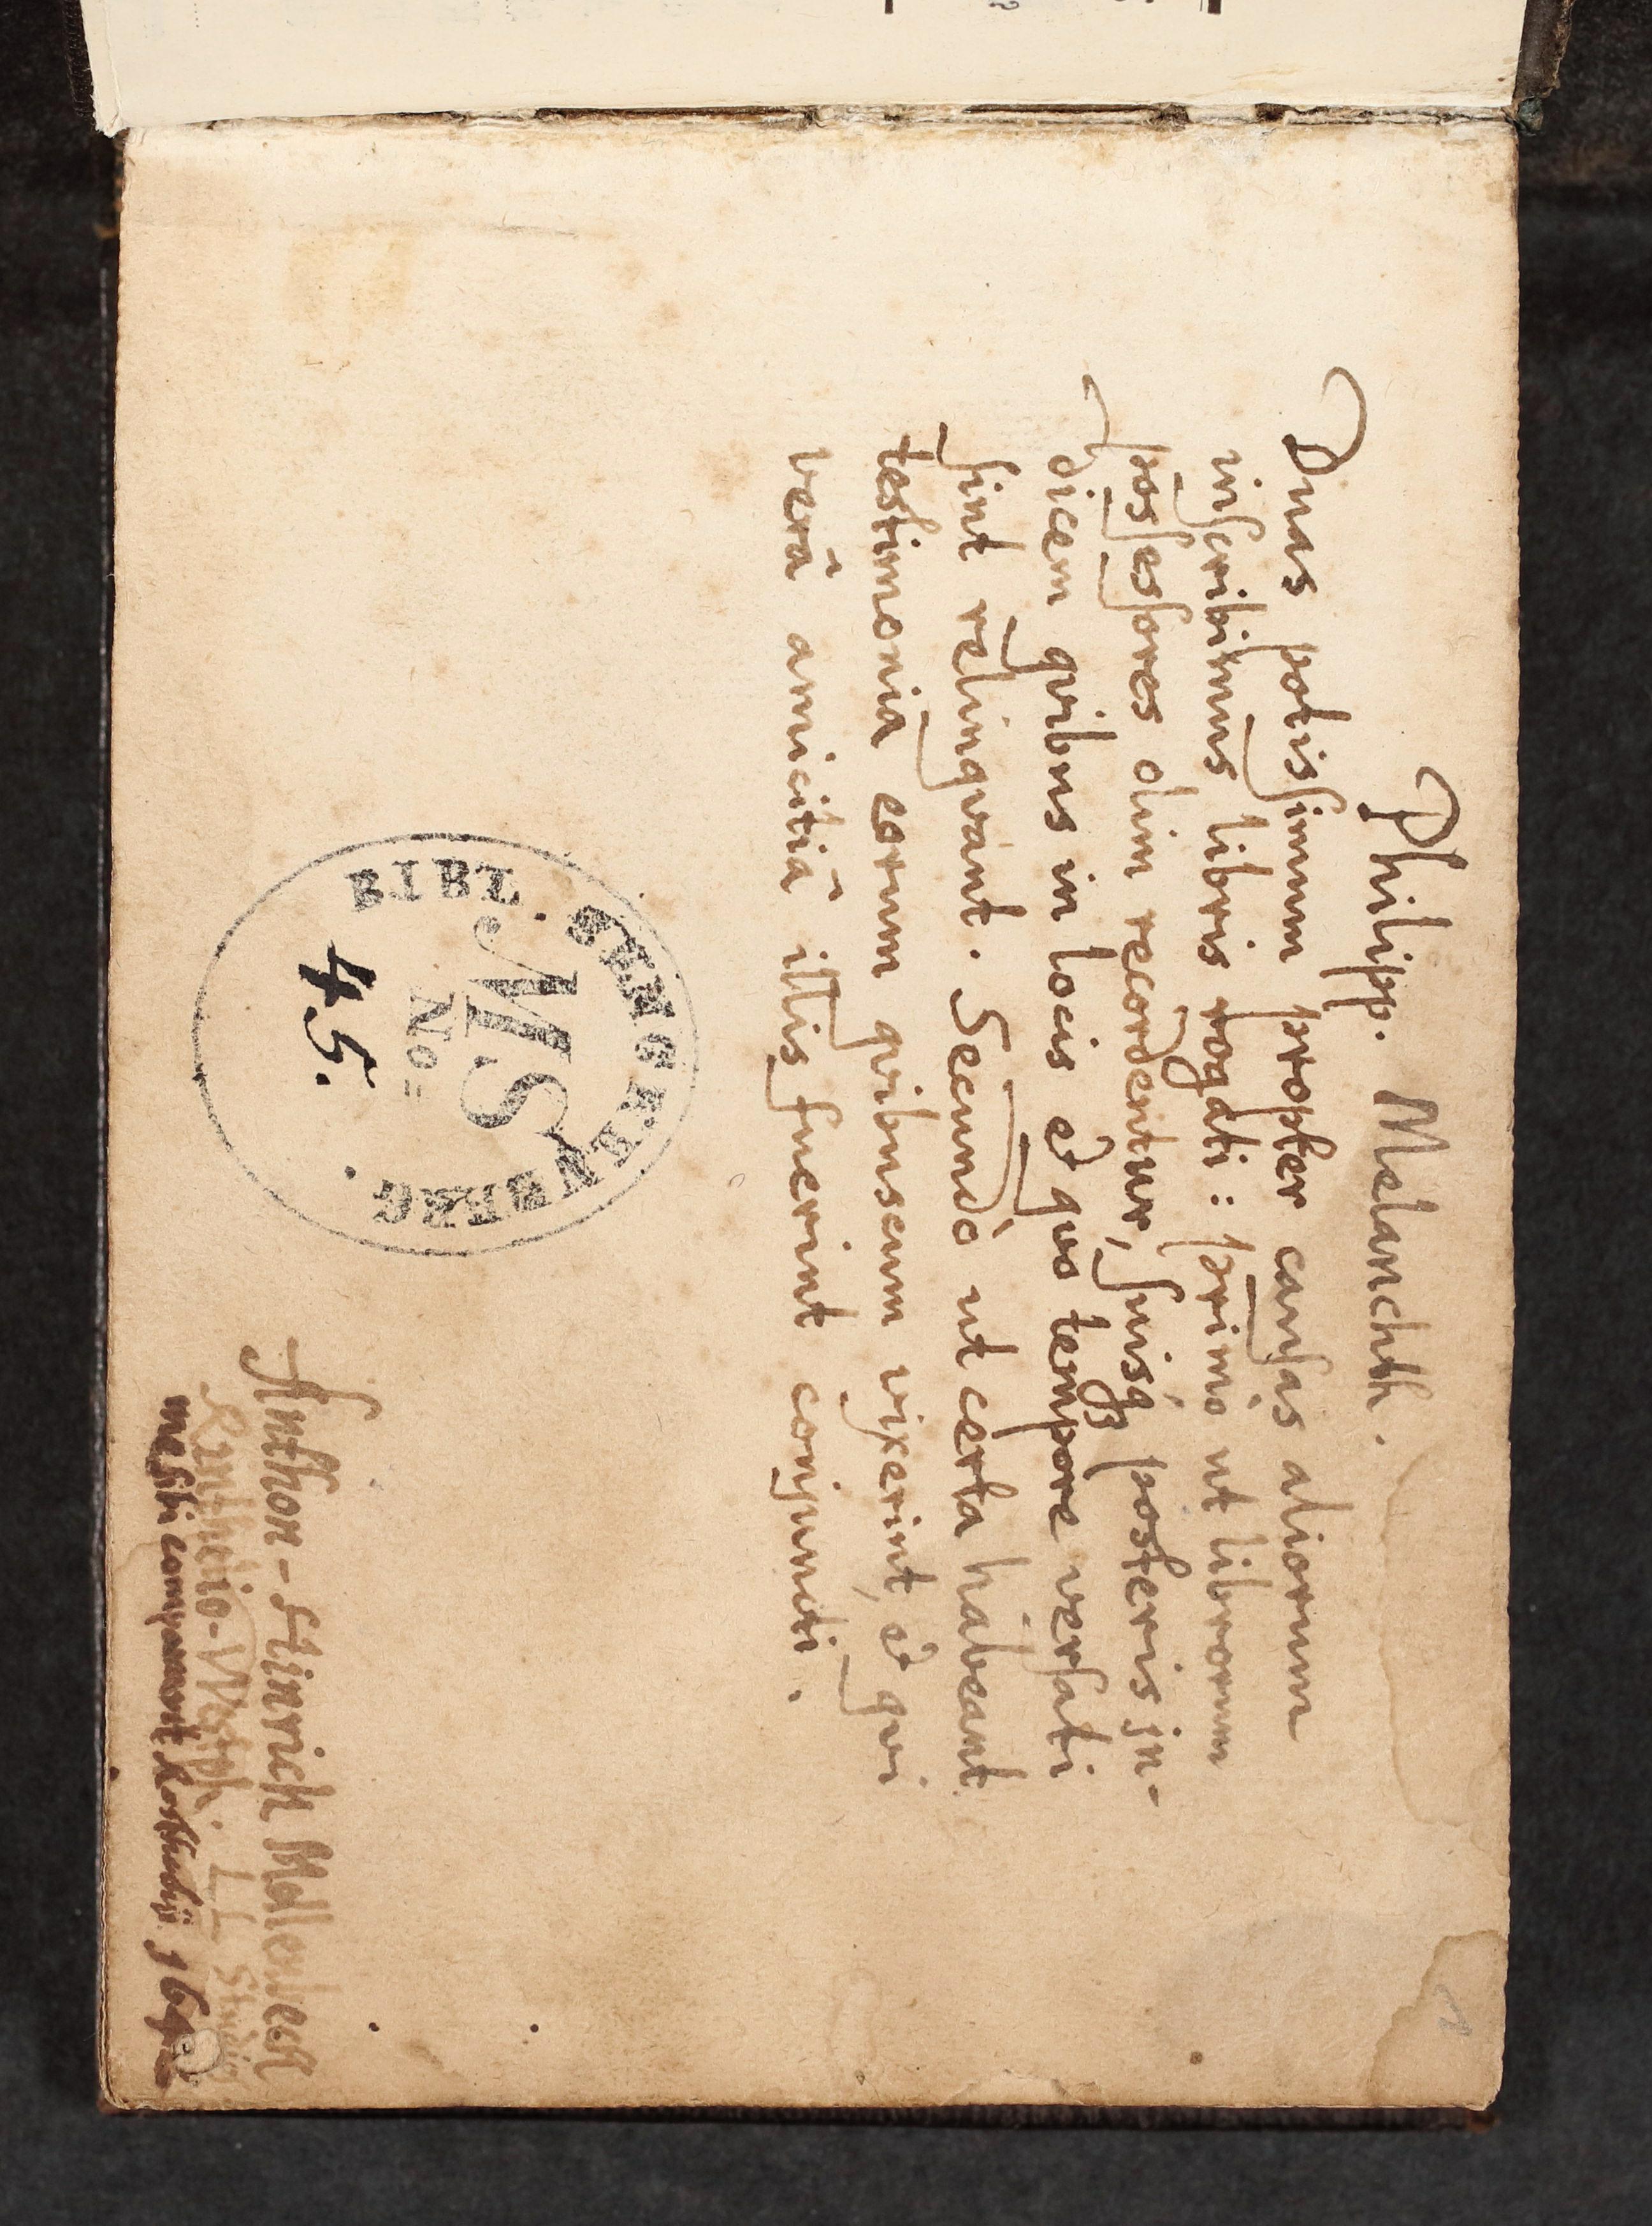 Philipp. Melanchth.
Duas potissimum propter causas aliorum
inscribimus libris rogati: primò ut librorum
possessores olim recordentur, suisq́ꝫ posteris in-
dicem quibus in locis et quo tempore versati
sint relinqvant. Secundò ut certa habeant
testimonia eorum quibuscum vixerint, et qvi
verâ amicitiâ illis fuerint conjuncti.
BENGEL·EVBERG·
BIBL·
MS
No=
45.
Anthon-Hinrich Mollenbeck
Rinthelio-Westph. LL Studios
me sibi comparavit Rosthochij 164